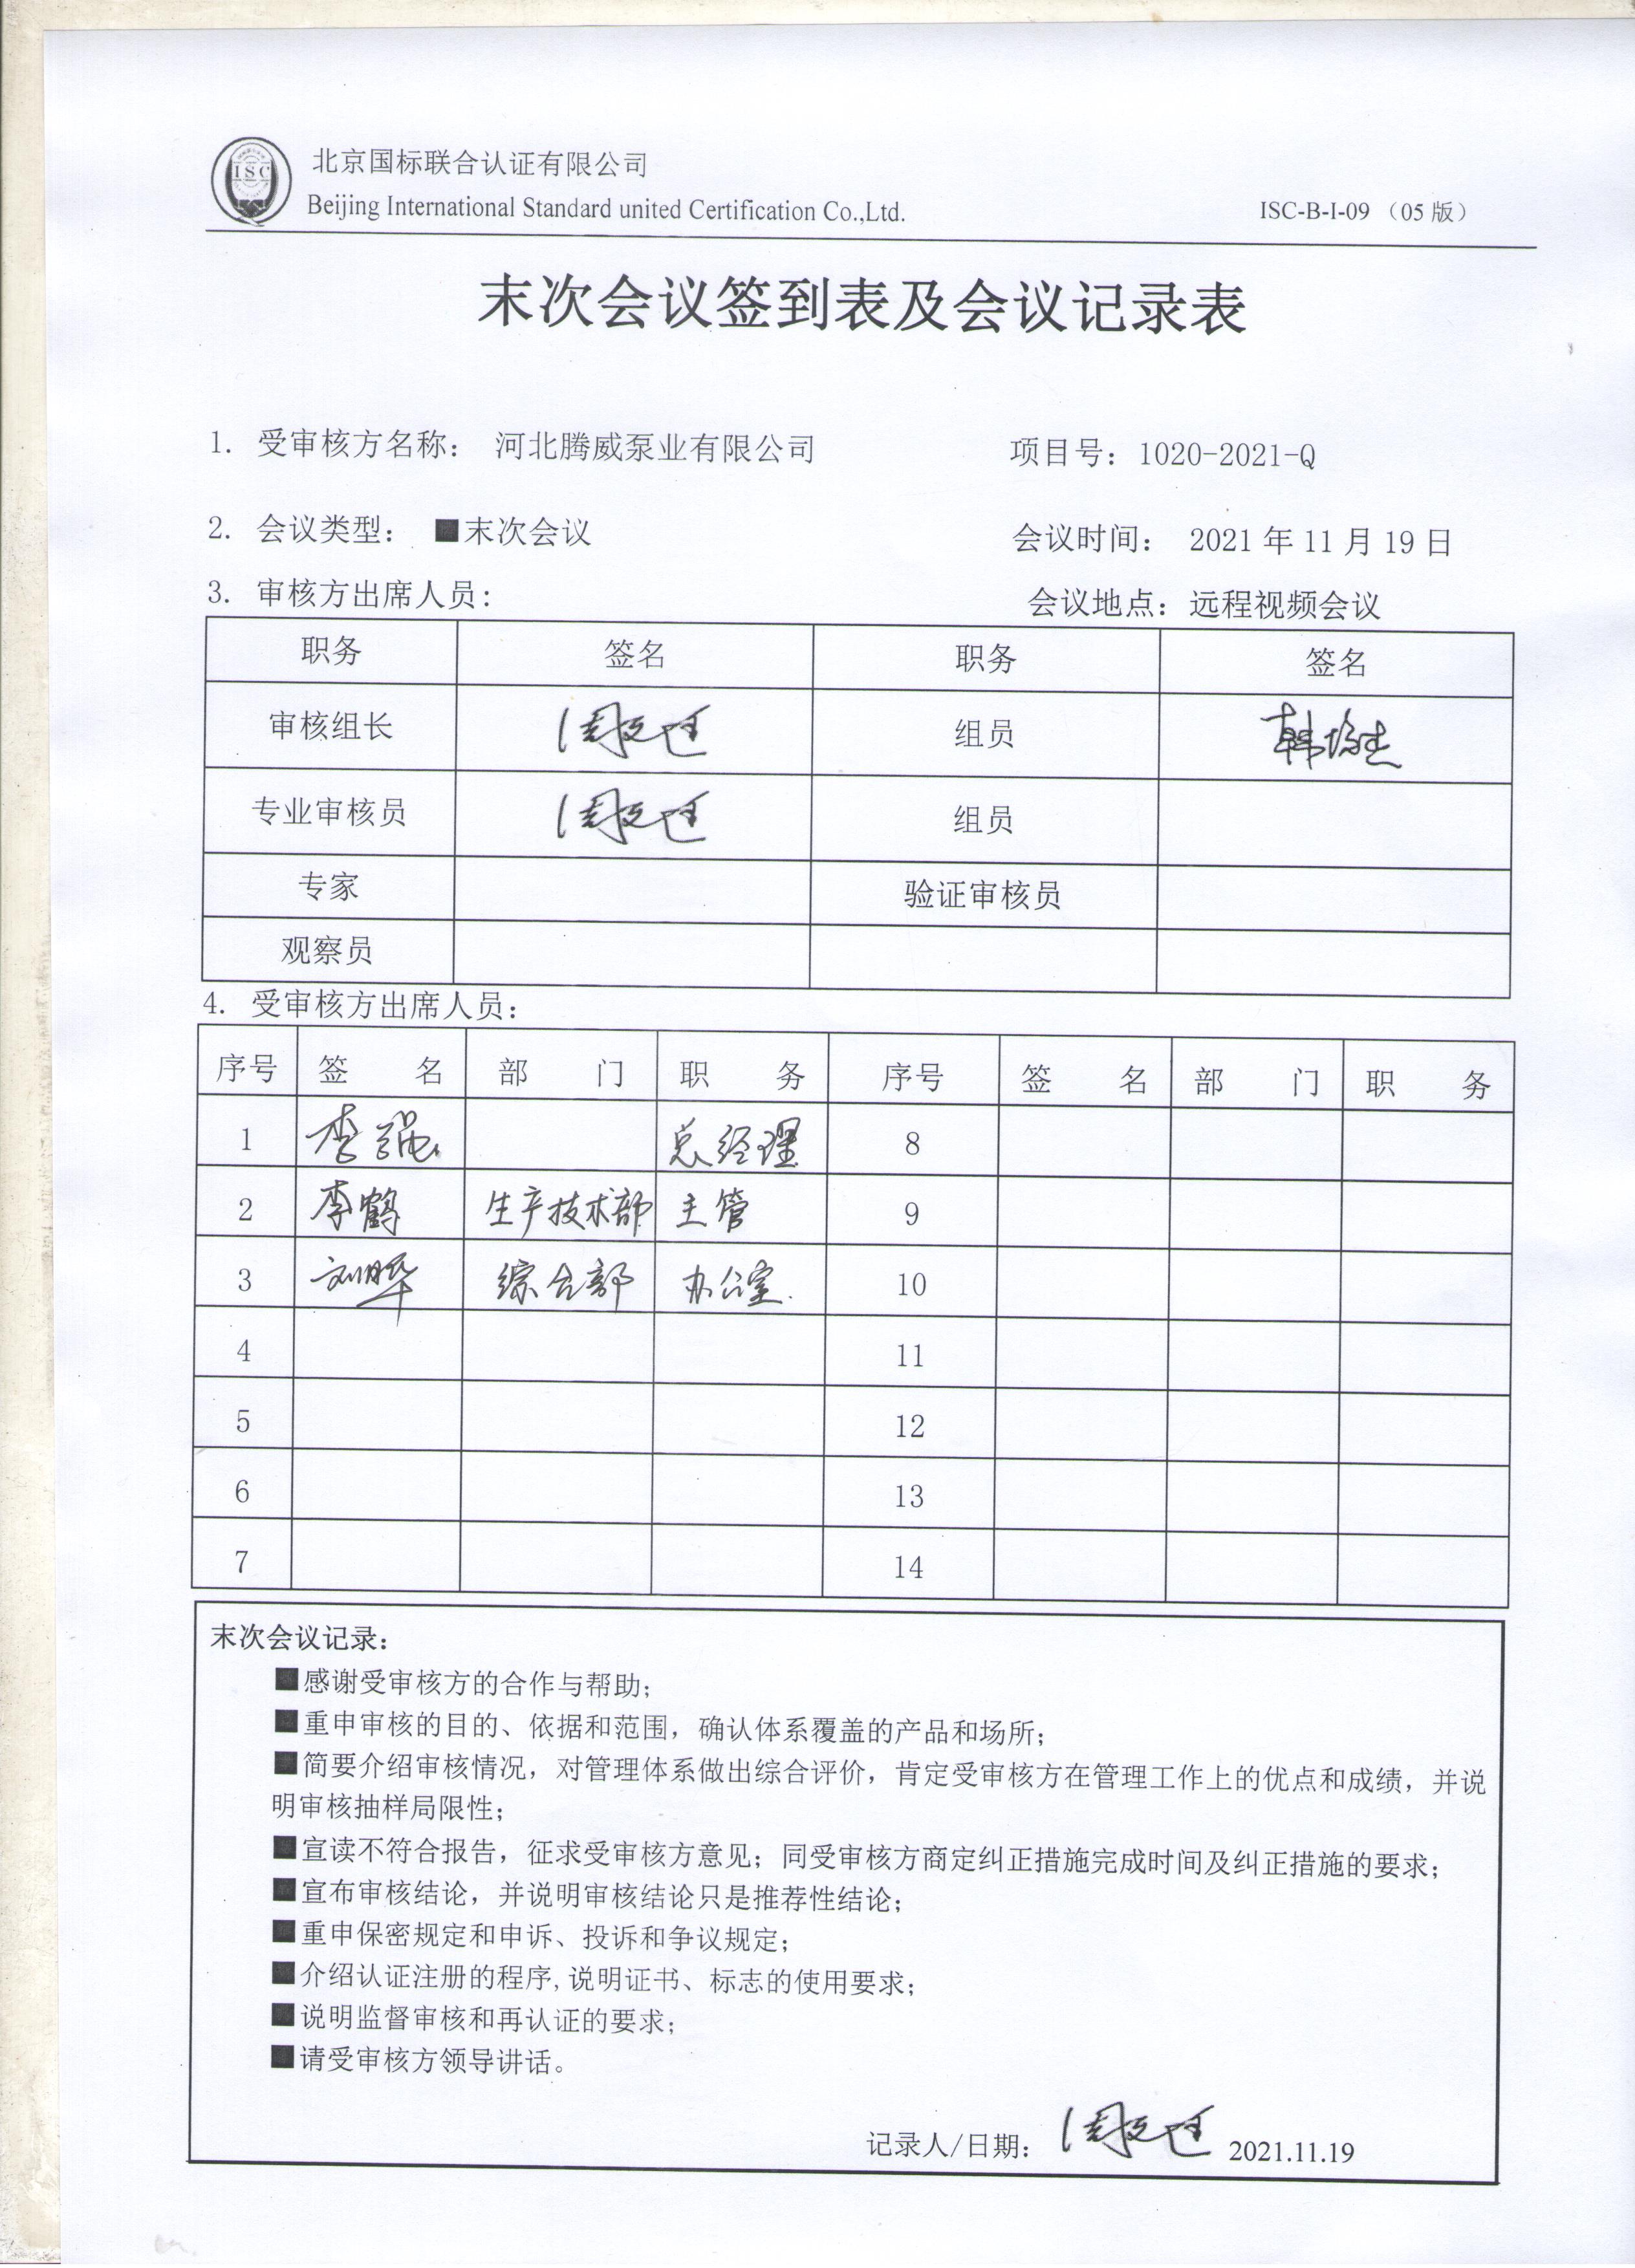 ISC
北京国标联合认证有限公司
Beijing International Standard united Certification Co.,Ltd.
ISC-B-I-09 （05 版）
末次会议签到表及会议记录表
1. 受审核方名称： 河北腾威泵业有限公司 项目号：1020-2021-Q
2. 会议类型： ■末次会议 会议时间： 2021 年 11 月 19 日
3. 审核方出席人员： 会议地点：远程视频会议
职务 签名 职务 签名
审核组长 组员
专业审核员 组员
专家 验证审核员
观察员
4. 受审核方出席人员：
序号 签 名 部 门 职 务 序号 签 名 部 门 职 务
1 李强 总经理 8
2 李鹤 生产技术部 主管 9
3 刘晔 综合部 办公室. 10
4 11
5 12
6 13
7 14
末次会议记录：
■感谢受审核方的合作与帮助；
■重申审核的目的、依据和范围，确认体系覆盖的产品和场所；
■简要介绍审核情况，对管理体系做出综合评价，肯定受审核方在管理工作上的优点和成绩，并说
明审核抽样局限性；
■宣读不符合报告，征求受审核方意见；同受审核方商定纠正措施完成时间及纠正措施的要求；
■宣布审核结论，并说明审核结论只是推荐性结论；
■重申保密规定和申诉、投诉和争议规定；
■介绍认证注册的程序,说明证书、标志的使用要求；
■说明监督审核和再认证的要求；
■请受审核方领导讲话。
记录人/日期： 2021.11.19